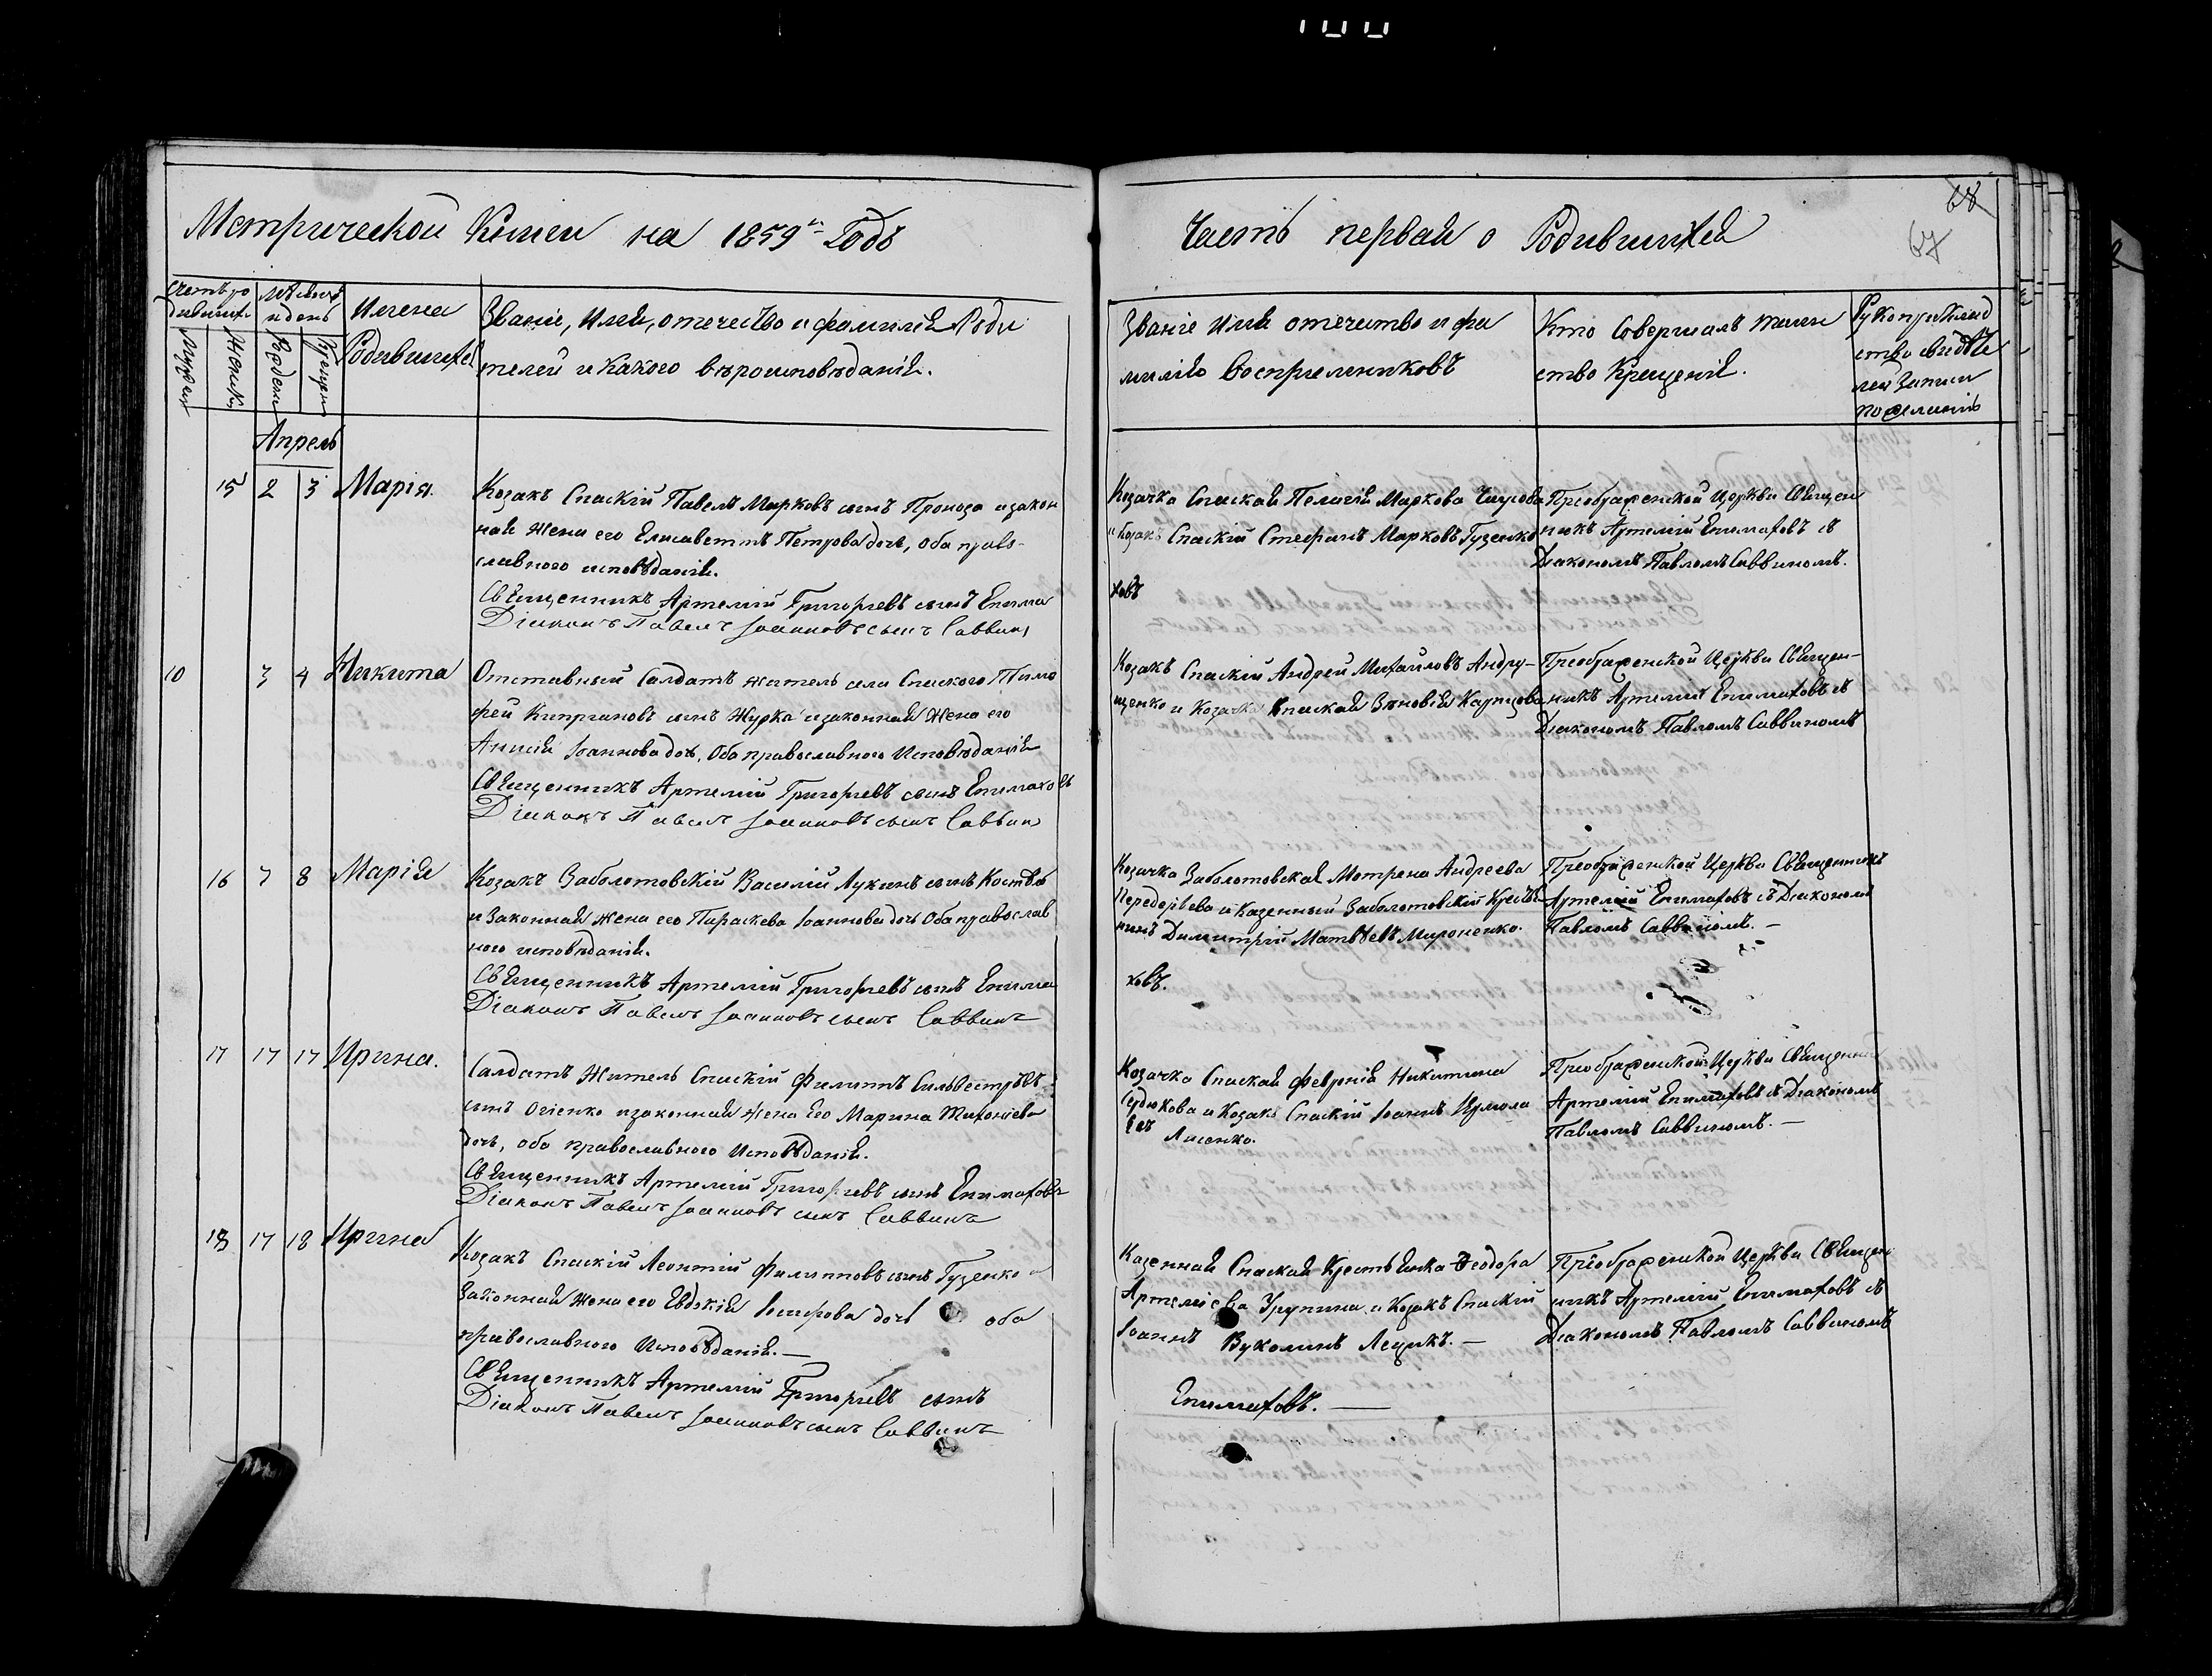 100
Метрической Книги на 1859й Годъ
Часть первая о Родившихся
68
67
Счетъ ро
дившихъ
Мужеск
Женск.
Мѣсяцъ
и день
Рожден
Крещен
Имена
Родившихся
Званіе, Имя, отечество и фамилія Роди
телей и какого вѣроисповѣданія.
Званіе Имя отечество и фа
милія Воспріемниковъ
Кто Совершалъ таин
ство Крещенія.
Рукоприклад
ство свидѣте
лей Записи
по желанію
Апрель
15 2 3 Марія.
Козакъ Спаскій Павелъ Марковъ сынъ Проноза и закон
ная жена его Елисаветта Петрова дочь, оба право-
славного исповѣданія.
Священникъ Артемій Григорьевъ сынъ Епима
Діаконъ Павелъ Іоанновъ сынъ Саввинъ
Козачка Спаская Пелагія Маркова
и Козакъ Спаскій Стефанъ Марковъ Гузенко
ховъ
Преображенской Церкви Священ
никъ Артемій Епимаховъ съ
Діакономъ Павломъ Саввиномъ.
10 3 4 Никита
Отставный Салдатъ житель села Спаского Тимо
фей Кипріановъ сынъ Журба и законная жена его
Анисія Іоаннова дочь, Оба православного Исповѣданія
Священникъ Артемій Григорьевъ сынъ Епимаховъ
Діаконъ Павелъ Іоанновъ сынъ Саввинъ
Козакъ Спаскій Андрей Михайловъ Андру-
щенко и Козачка Спаская Зѣновія Карпцова
Преображенской Церкви Священ-
никъ Артемій Епимаховъ съ
Діакономъ Павломъ Саввиномъ
16 7 8 Марія
Козакъ Заболотовскій Василій Лукинъ сынъ Костюкъ
и Законная жена его Параскева Іоаннова дочь Оба православ
ного исповѣданія.
Священникъ Артемій Григорьевъ сынъ Епима
Діаконъ Павелъ Іоанновъ сынъ Саввинъ
Козачка Заболотовская Мотрона Андреева
Передеріева и Казенный Заболотовскій Крестья
нинъ Димитрій Матвѣевъ Мироненко.
ховъ.
Преображенской Церкви Священникъ
Артемій Епимаховъ съ Діакономъ
Павломъ Саввиномъ. -
17 17 17 Ирина.
Салдатъ Житель Спаскій Филиппъ Сильвестровъ
сынъ Огіенко и законная жена Его Марина Тихоніева
дочь, оба православного Исповѣданія.
Священникъ Артемій Григорьевъ сынъ Епимаховъ
Діаконъ Павелъ Іоанновъ сынъ Саввинъ
Козачка Спаская Февронія Никитина
Сердюкова и Козакъ Спаскій Іоаннъ Ермола
евъ Лисенко.
Преображенской Церкви Священни
Артемій Епимаховъ съ Діакономъ
Павломъ Саввиномъ. -
18 17 18 Ирина
Козакъ Спаскій Леонтій Филипповъ сынъ Гузенко и
Законная жена его Евдокія Іосифова дочь оба
православного Исповѣданія. -
Священникъ Артемій Григорьевъ сынъ
Діаконъ Павелъ Іоанновъ сынъ Саввинъ
Казенная Спаская Крестьянка Ѳеодора
Артеміева Урупина и Козакъ Спаскій
Іоаннъ Вуколинъ Лещикъ. -
Епимаховъ. -
Преображенской Церкви Священ
никъ Артемій Епимаховъ съ
Діакономъ Павломъ Саввиномъ